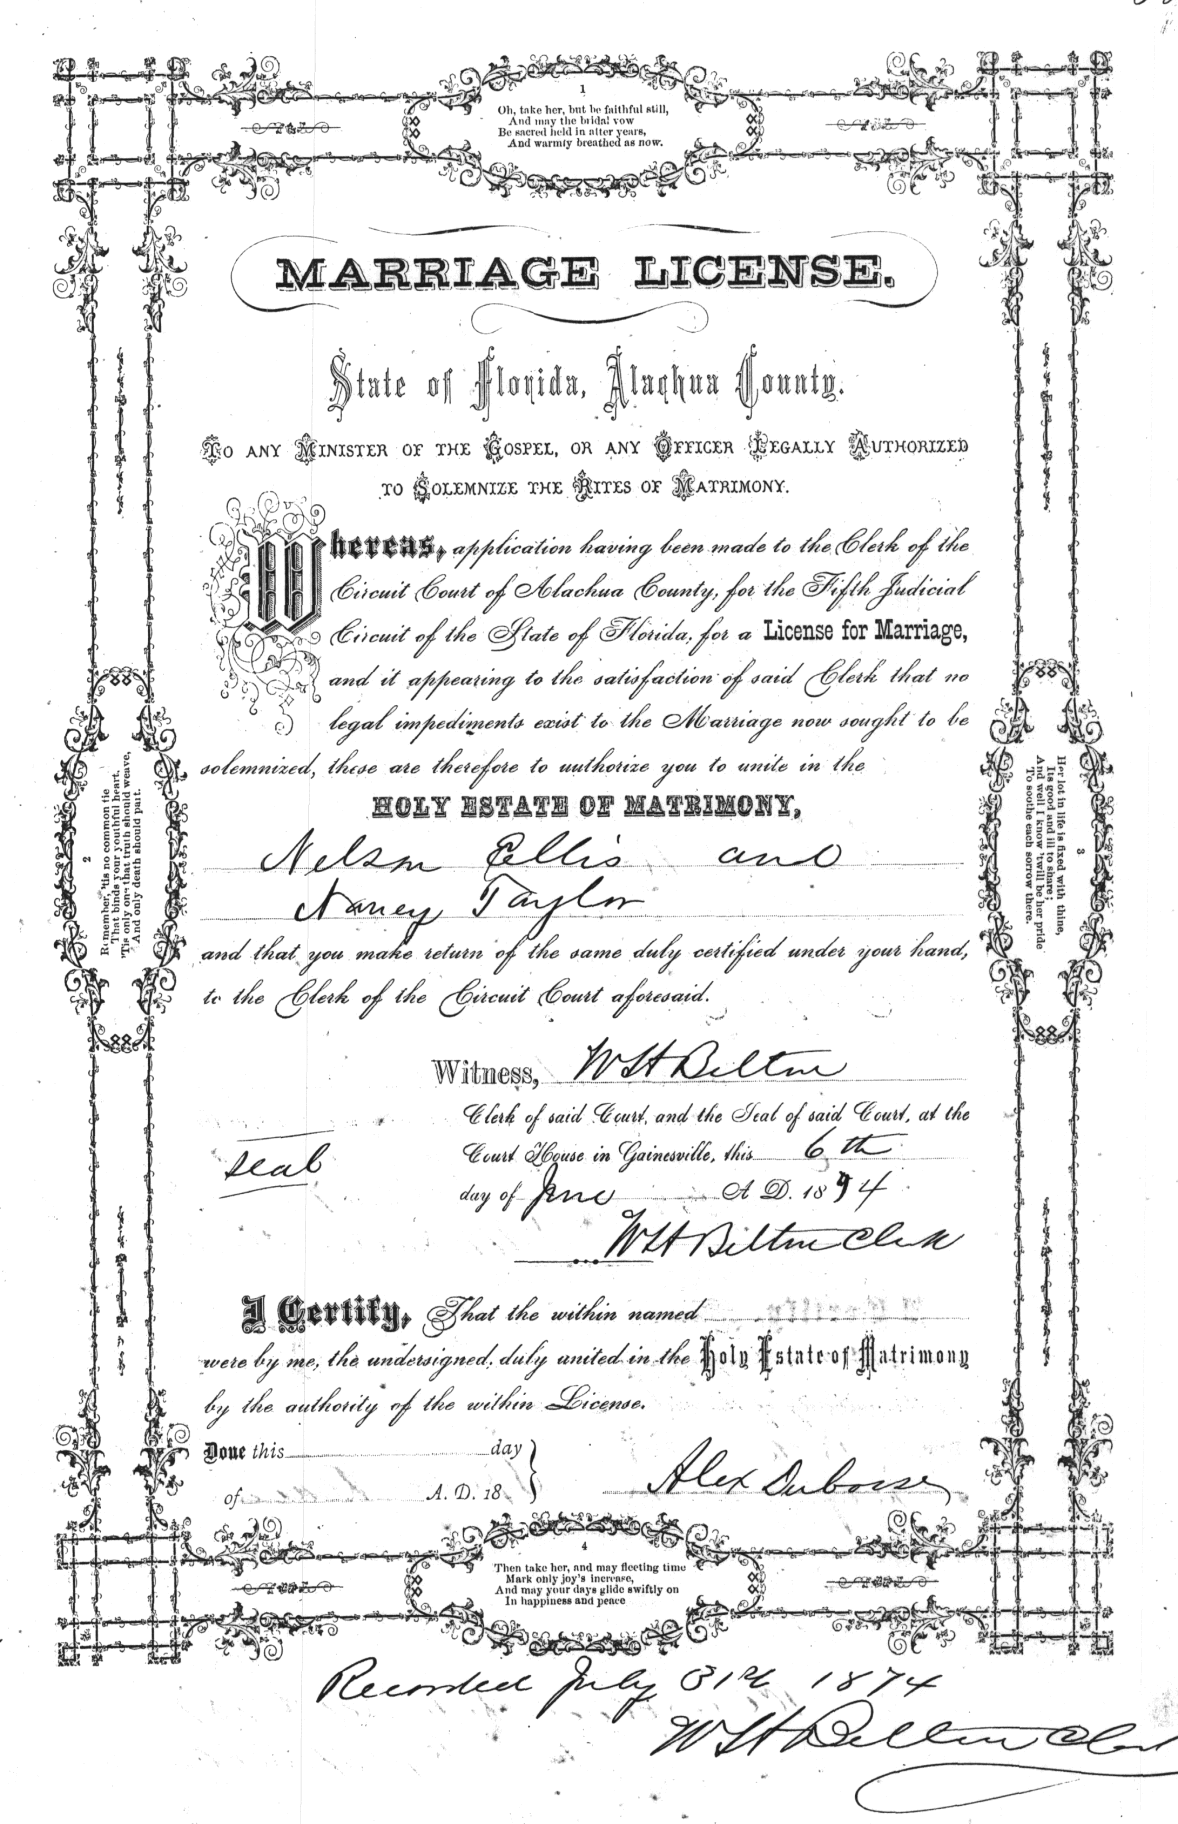 1
Oh, take her, but be faithful still,
And may the bridal vow
Be sacred held in after years,
And warmly breathed as now.
MARRIAGE LICENSE.
State of Florida, Alachua County.
TO ANY MINISTER OF THE GOSPEL, OR ANY OFFICER LEGALLY AUTHORIZED
TO SOLEMNIZE THE RITES OF MATRIMONY.
Whereas, application having been made to the Clerk of the
Circuit Court of Alachua County, for the Fifth Judicial
Circuit of the State of Florida, for a License for Marriage,
and it appearing to the satisfaction of said Clerk that no
legal impediments exist to the Marriage now sought to be
solemnized, these are therefore to authorize you to unite in the
HOLY ESTATE OF MATRIMONY,
Nelson Ellis and
Nancy Taylor
and that you make return of the same duly certified under your hand,
to the Clerk of the Circuit Court aforesaid.
2
Remember, 'tis no common tie
That binds your youthful heart,
'Tis only one that truth should weave,
And only death should part.
3
Her lot in life is fixed with thine,
Its good and ill to share;
And well I know 'twill be her pride
To soothe each sorrow there.
Witness, W H Belton
Clerk of said Court, and the Seal of said Court, at the
seal
Court House in Gainesville, this 6th
day of June A D. 1874
W H Belton Clerk
I Certify, That the within named
were by me, the undersigned, duly united in the Holy Estate of Matrimony
by the authority of the within License.
Done this day
of A. D. 18
Alex Dubose
4
Then take her, and may fleeting time
Mark only joy's increase,
And may your days glide swiftly on
In happiness and peace
Recorded July 31st 1874
W H Belton Clerk